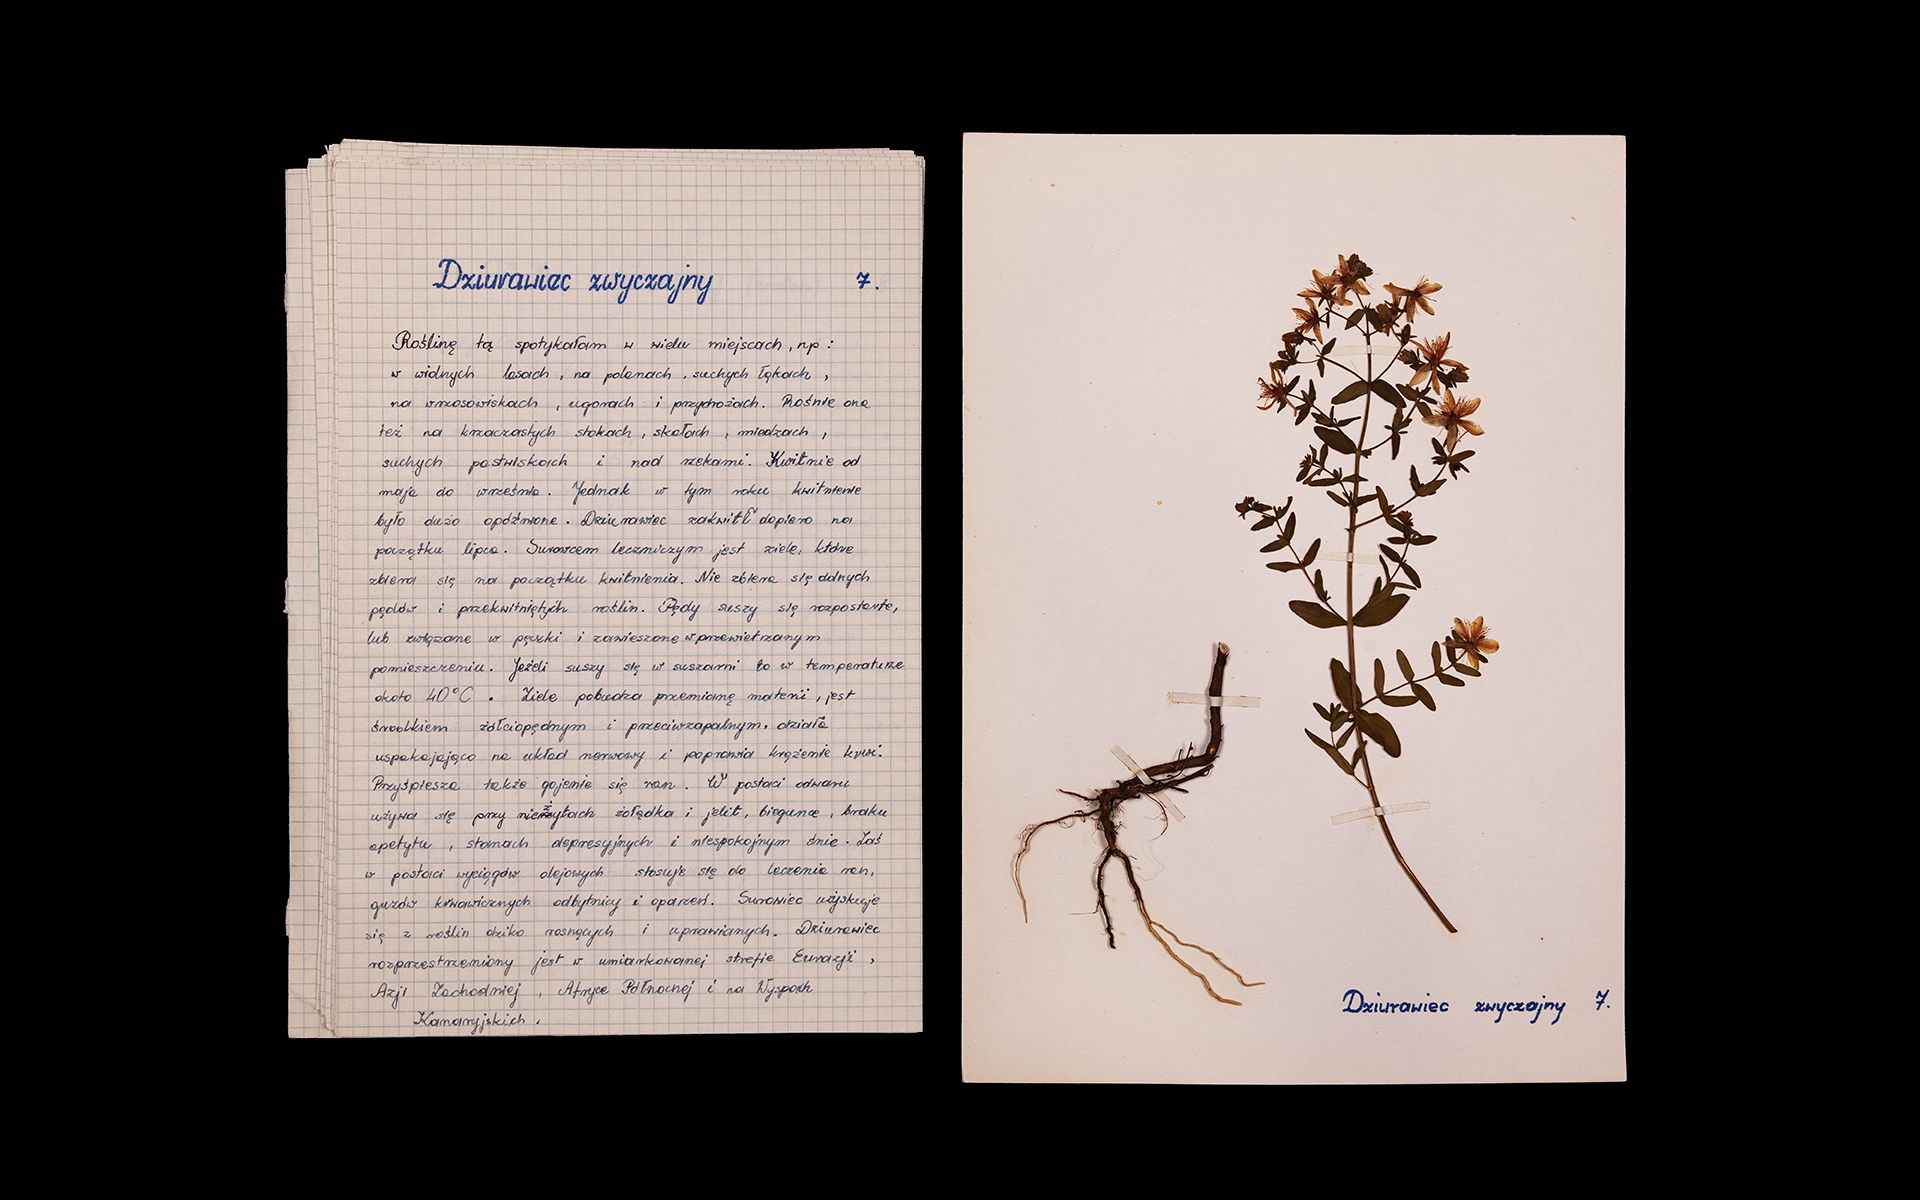 Dziurawiec zwyczajny 7.
Roślinę tą spotykałam w wielu miejscach, np :
w widnych lasach, na polanach, suchych łąkach,
na wrzosowiskach, ugorach i przydrożach. Rośnie ona
też na krzaczastych stokach, skałach, miedzach,
suchych pastwiskach i nad rzekami. Kwitnie od
maja do września. Jednak w tym roku kwitnienie
było dużo opóźnione. Dziurawiec zakwitł dopiero na
początku lipca. Surowcem leczniczym jest ziele, które
zbiera się na początku kwitnienia. Nie zbiera się dolnych
pędów i przekwitniętych roślin. Pędy suszy się rozpostarte,
lub związane w pęczki i zawieszone w przewietrzanym
pomieszczeniu. Jeżeli suszy się w suszarni to w temperaturze
około 40°C. Ziele pobudza przemianę materii, jest
środkiem żółciopędnym i przeciwzapalnym, działa
uspakajająco na układ nerwowy i poprawia krążenie krwi.
Przyśpiesza także gojenie się ran. W postaci odwaru
używa się przy nieżytach żołądka i jelit, biegunce, braku
apetytu, stanach depresyjnych i niespokojnym śnie. Zaś
w postaci wyciągów olejowych stosuje się do leczenia ran,
guzów krwawicznych odbytnicy i oparzeń. Surowiec uzyskuje
się z roślin dziko rosnących i uprawianych. Dziurawiec
rozprzestrzeniony jest w umiarkowanej strefie Eurazji,
Azji Zachodniej, Afryce Północnej i na Wyspach
Kanaryjskich.
Dziurawiec zwyczajny 7.